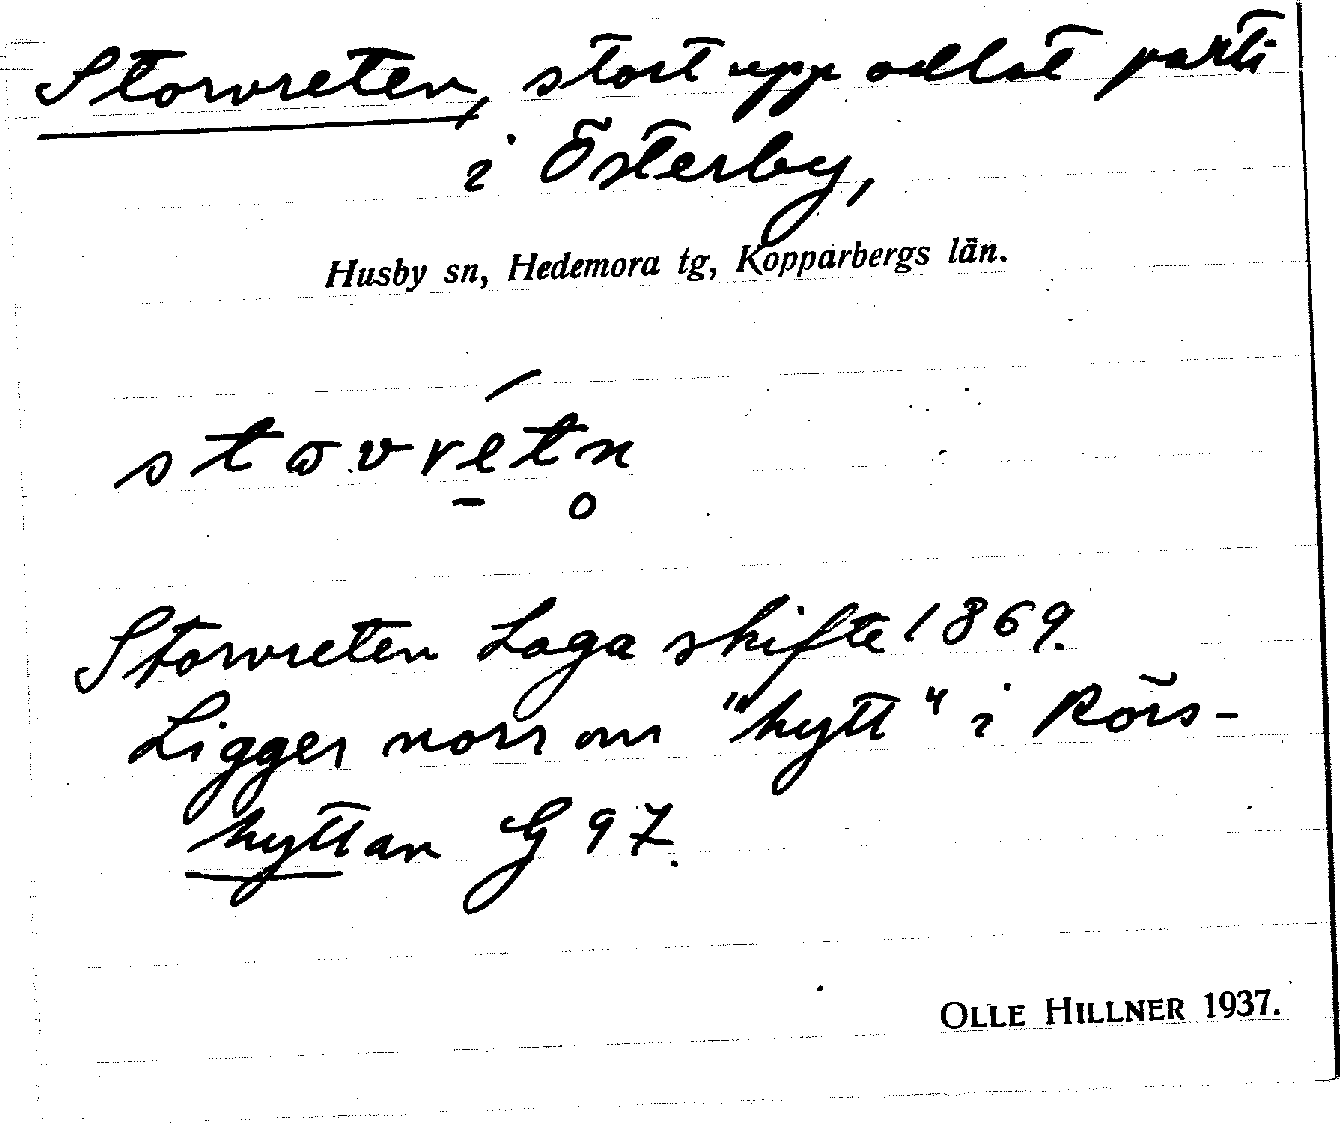 Storvreten, stort upp odlat parti
i Österby,
Husby sn, Hedemora tg, Kopparbergs län.
stωvrétn̥
Storvreten Laga skifte 1869.
Ligger norr om "hytt" i Rörs-
hyttan G 97.
OLLE HILLNER 1937.